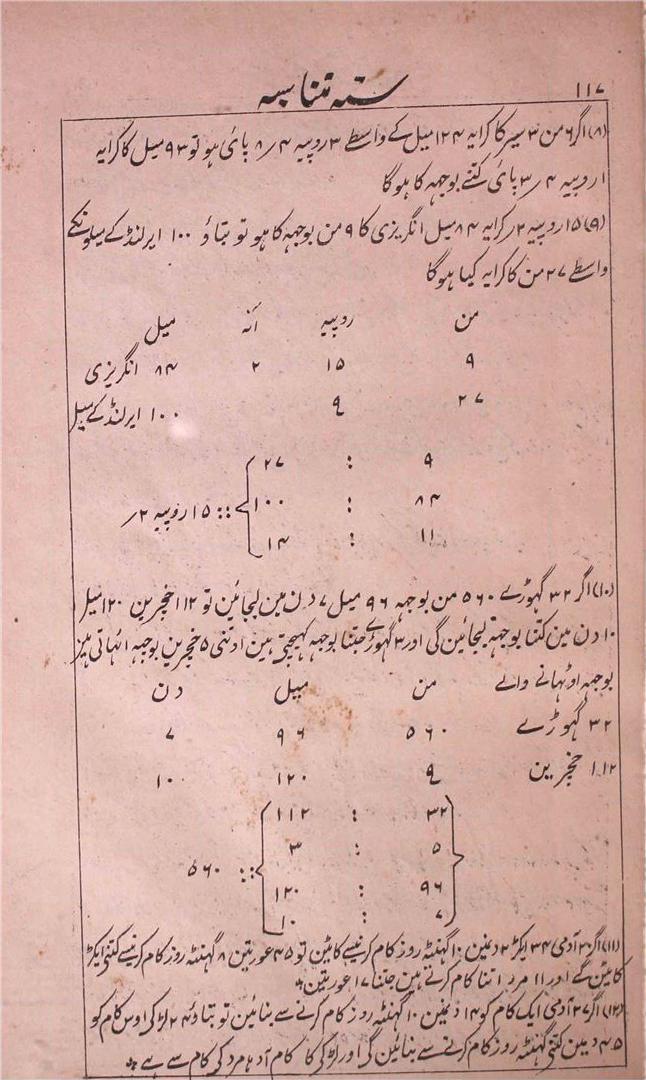 ۱۱۷ ستہ متناسبہ
(۸) اگر ۶ من ۳ سیر کا کرایہ ۱۲۴ میل کے واسطے ۳ روپیہ ۴؍۸ پائی ہو تو ۹۳ میل کا کرایہ
۱ روپیہ ۴؍۳ پائی کتنے بوجہہ کا ہوگا
(۹) ۱۵ روپیہ ۲؍ کرایہ ۸۴ میل انگریزی کا ۹ من بوجہہ کا ہو تو بتاؤ ۱۰۰ ایرلنڈ کے میلونکے
واسطے ۲۷ من کا کرایہ کیا ہوگا
من روپیہ آنہ میل
۹ ۱۵ ۲ ۸۴ انگریزی
۲۷ ؟ ۱۰۰ ایرلنڈ کے میل
۹ : ۲۷
۸۴ : ۱۰۰ :: ۱۵ روپیہ ۲؍
۱۱ : ۱۴
(۱۰) اگر ۳۲ گہوڑے ۵۶۰ من بوجہہ ۹۶ میل ۷ دن مین لیجائین تو ۱۱۲ خچرین ۱۲۰ میل
۱۰ دن مین کتنا بوجہہ لیجائین گی اور ۳ گہوڑے جتنا بوجہہ کہیچتی ہین اوتنی ۵ خچرین بوجہہ اٹہاتی ہین
بوجہہ اوٹہانے والے من میل دن
۳۲ گہوڑے ۵۶۰ ۹۶ ۷
۱۱۲ خچرین ؟ ۱۲۰ ۱۰
۳۲ : ۱۱۲
۵ : ۳
۹۶ : ۱۲۰ :: ۵۶۰
۷ : ۱۰
(۱۱) اگر ۲۰ آدمی ۳۴ ایکڑ ۲ دنین ۱۰ گہنٹہ روز کام کرنیسے کاٹین تو ۴۵ عورتین ۸ گہنٹہ روز کام کرنیسے کتنی ایکڑ
کاٹین گے اور ۱۱ مرد اتنا کام کرتے ہین جتنا ۱۷ عورتین *
(۱۲) اگر ۲۷ آدمی ایک کام کو ۱۴ دنین ۱۰ گہنٹہ روز کام کرنے سے بنائین تو بتاؤ ۲۴ لڑکی اوس کام کو
۴۵ دنمین کتنی گہنٹہ روز کام کرنے سے بنائین گی اور لڑکی کا کام آدہا مرد کی کام سے ہے *